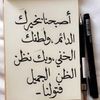 أصبحنا بخيرك
الدائم، ولطفك
الخفي، وبك نظن
الظن الجميل
فتولنا..